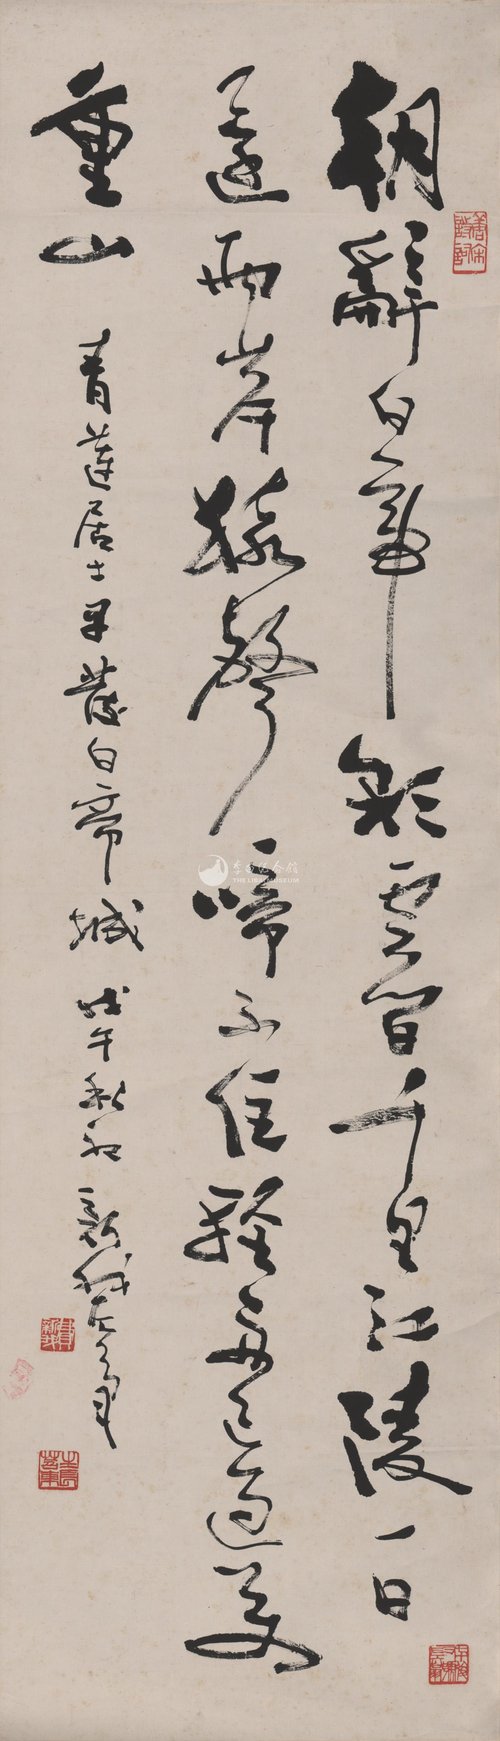 朝辭白帝彩雲間千里江陵一日
還兩岸猿聲啼不住輕舟已過萬
重山
青蓮居士早發白帝城 戊午秋初 新我左筆
李白紀念館
THE LIBAI MUSEUM